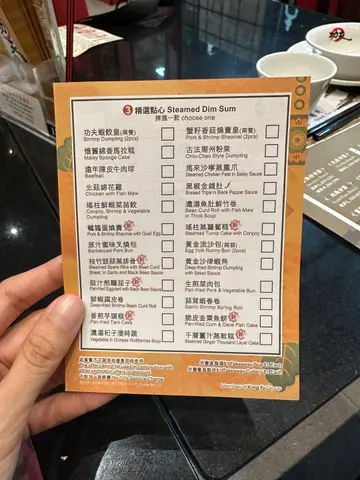 3 精選點心 Steamed Dim Sum
揀選一款 choose one
功夫蝦餃皇(兩隻)
Shrimp Dumpling (2pcs)
懷舊綿香馬拉糕
Malay Sponge Cake
遠年陳皮牛肉球
Beefball
北菇綿花雞
Chicken with Fish Maw
瑤柱鮮蝦菜苗餃
Conpoy, Shrimp & Vegetable
Dumpling
鵪鶉蛋燒賣
Pork & Shrimp Shaomai with Quail Egg
原汁蜜味叉燒包
Barbecued Pork Bun
豉汁蒸排骨
Steamed Spare Ribs with Bean Curd
Sheet, in Garlic and Black Bean Sauce
豉汁煎釀茄子
Pan-fried Eggplant with Black Bean Sauce
鮮蝦腐皮卷
Deep-fried Shrimp Bean Curd Roll
香煎芋頭糕
Pan-fried Taro Cake
濃湯杞子浸時蔬
Vegetable in Chinese Wolfberries Soup
蟹籽香菇燒賣皇(兩隻)
Pork & Shrimp Shaomai (2pcs)
古法潮州粉果
Chiu-Chao Style Dumpling
馬來沙爹蒸鳳爪
Steamed Chicken Feet in Satay Sauce
黑椒金錢肚
Braised Tripe in Black Pepper Sauce
濃湯魚肚鮮竹卷
Bean Curd Roll with Fish Maw
in Thick Soup
瑤柱蒸蘿蔔糕
Steamed Turnip Cake with Conpoy
黃金流沙包(兩隻)
Egg York Runny Bun (2pcs)
黃金沙律蝦角
Deep-fried Shrimp Dumpling
with Salad Sauce
生煎菜肉包
Pan-fried Pork & Vegetable Bun
蒜茸蝦春卷
Garlic Shrimp Spring Roll
脆皮金粟魚餅
Pan-fried Corn & Dace Fish Cake
千層薑汁蒸糕
Steamed Ginger Thousand Layer Cake